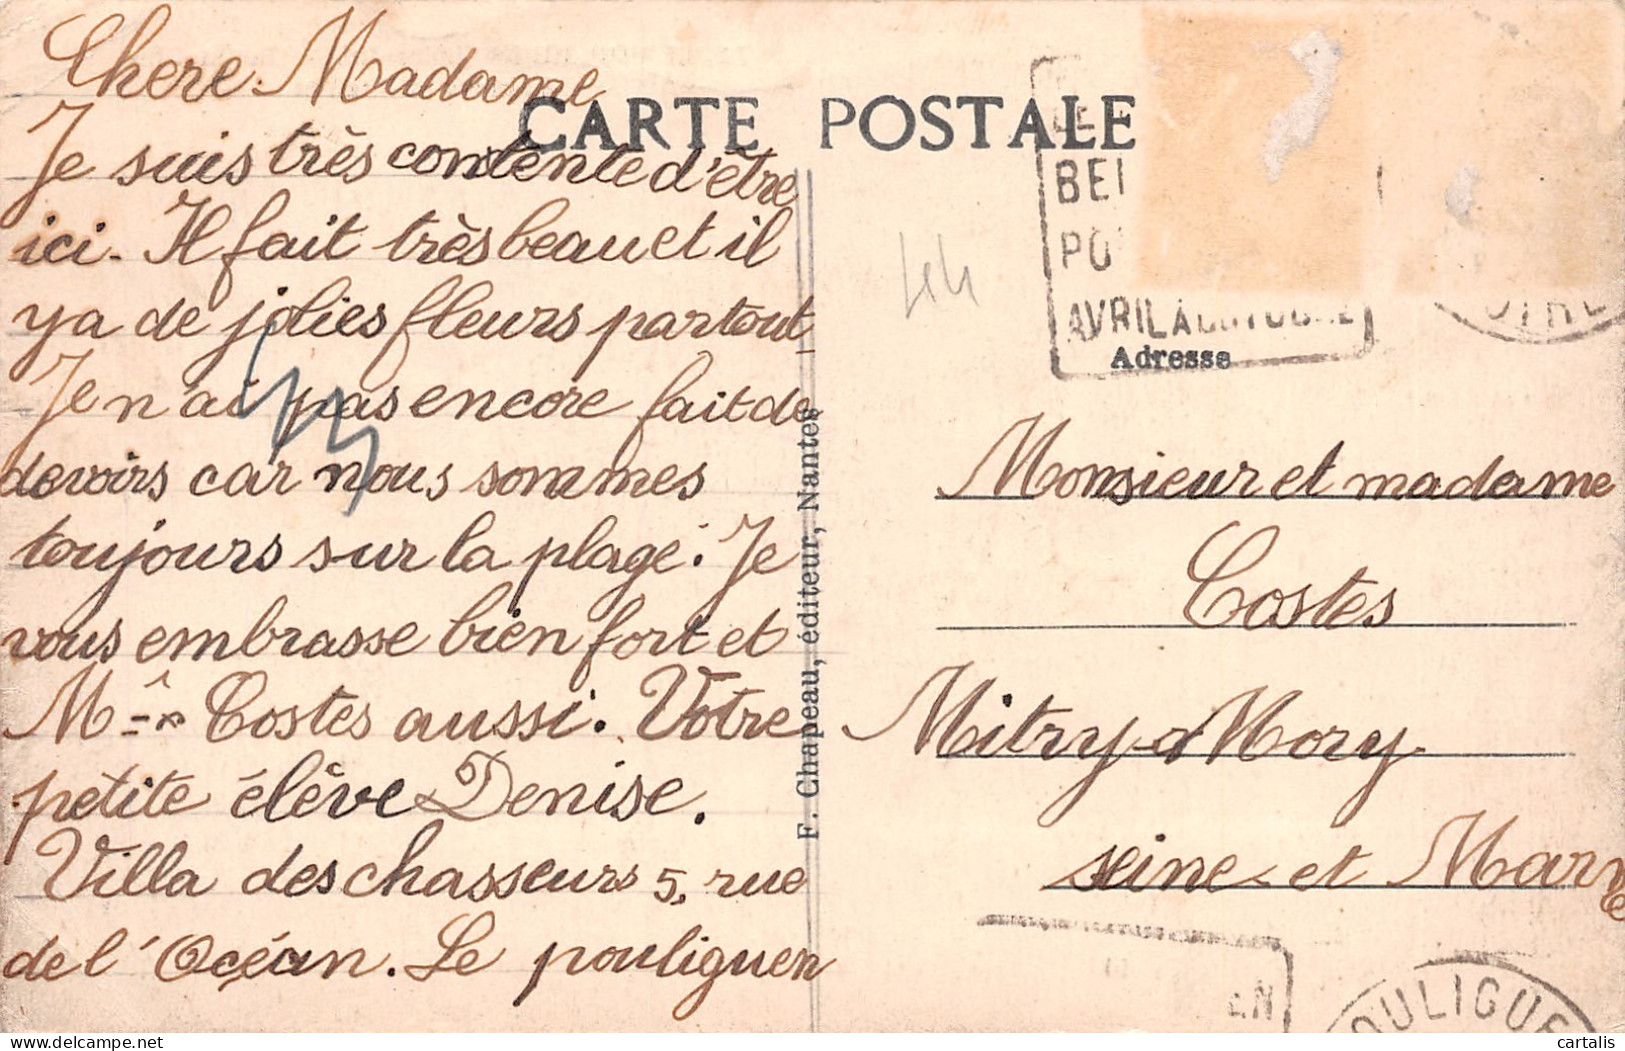 Chere Madame
Je suis très contente d'être
ici. Il fait très beau et il
y a de jolies fleurs partout
Je n'ai pas encore fait de
devoirs car nous sommes
toujours sur la plage. Je
vous embrasse bien fort et
Costes aussi. Votre
petite élève Denise.
Villa des chasseurs 5, rue
de l'Océan. Le pouliguen
CARTE POSTALE
F. Chapeau, éditeur, Nantes
44
AVRIL A
Adresse
Monsieur et madame
Costes
Mitry-Mory
seine et Marne
OULIGUE
cartalis